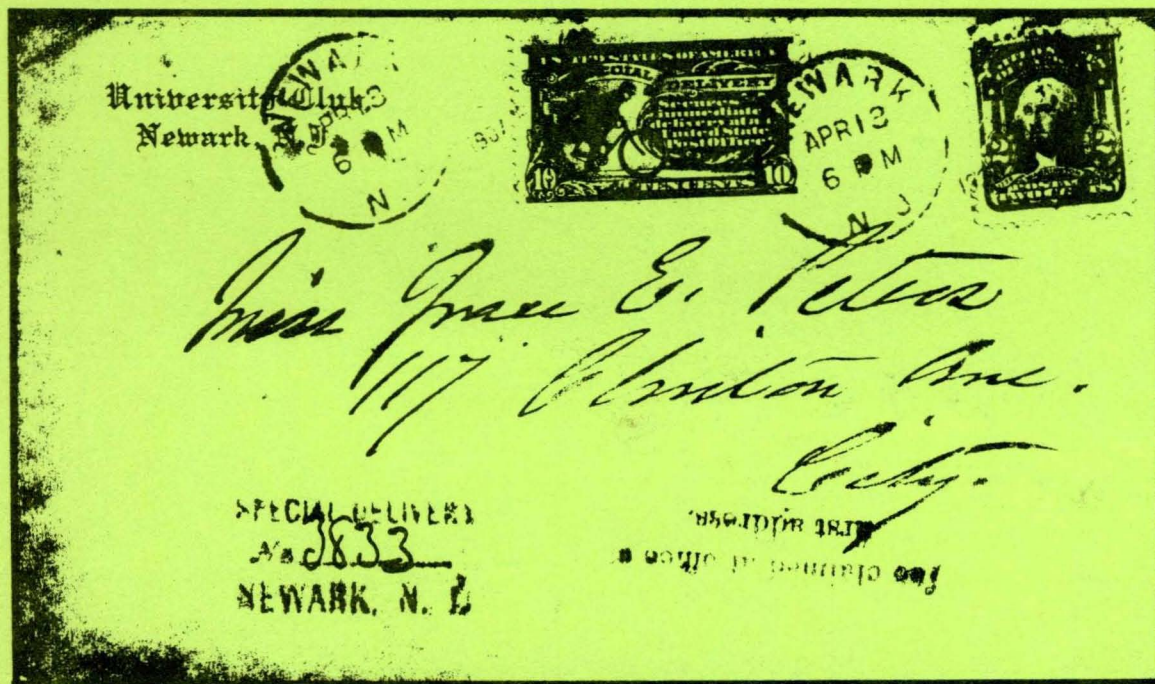 University Club
Newark, N.J.
NEWARK
APR 13
6 PM
N
190
UNITED STATES OF AMERICA
SPECIAL DELIVERY
10 TEN CENTS 10
NEWARK
APR 13
6 PM
N J
2 2
Miss Grace E. Peters
117 Clinton Ave.
City.
SPECIAL DELIVERY
No 3833
NEWARK, N. J.
fee claimed at office of
first address.